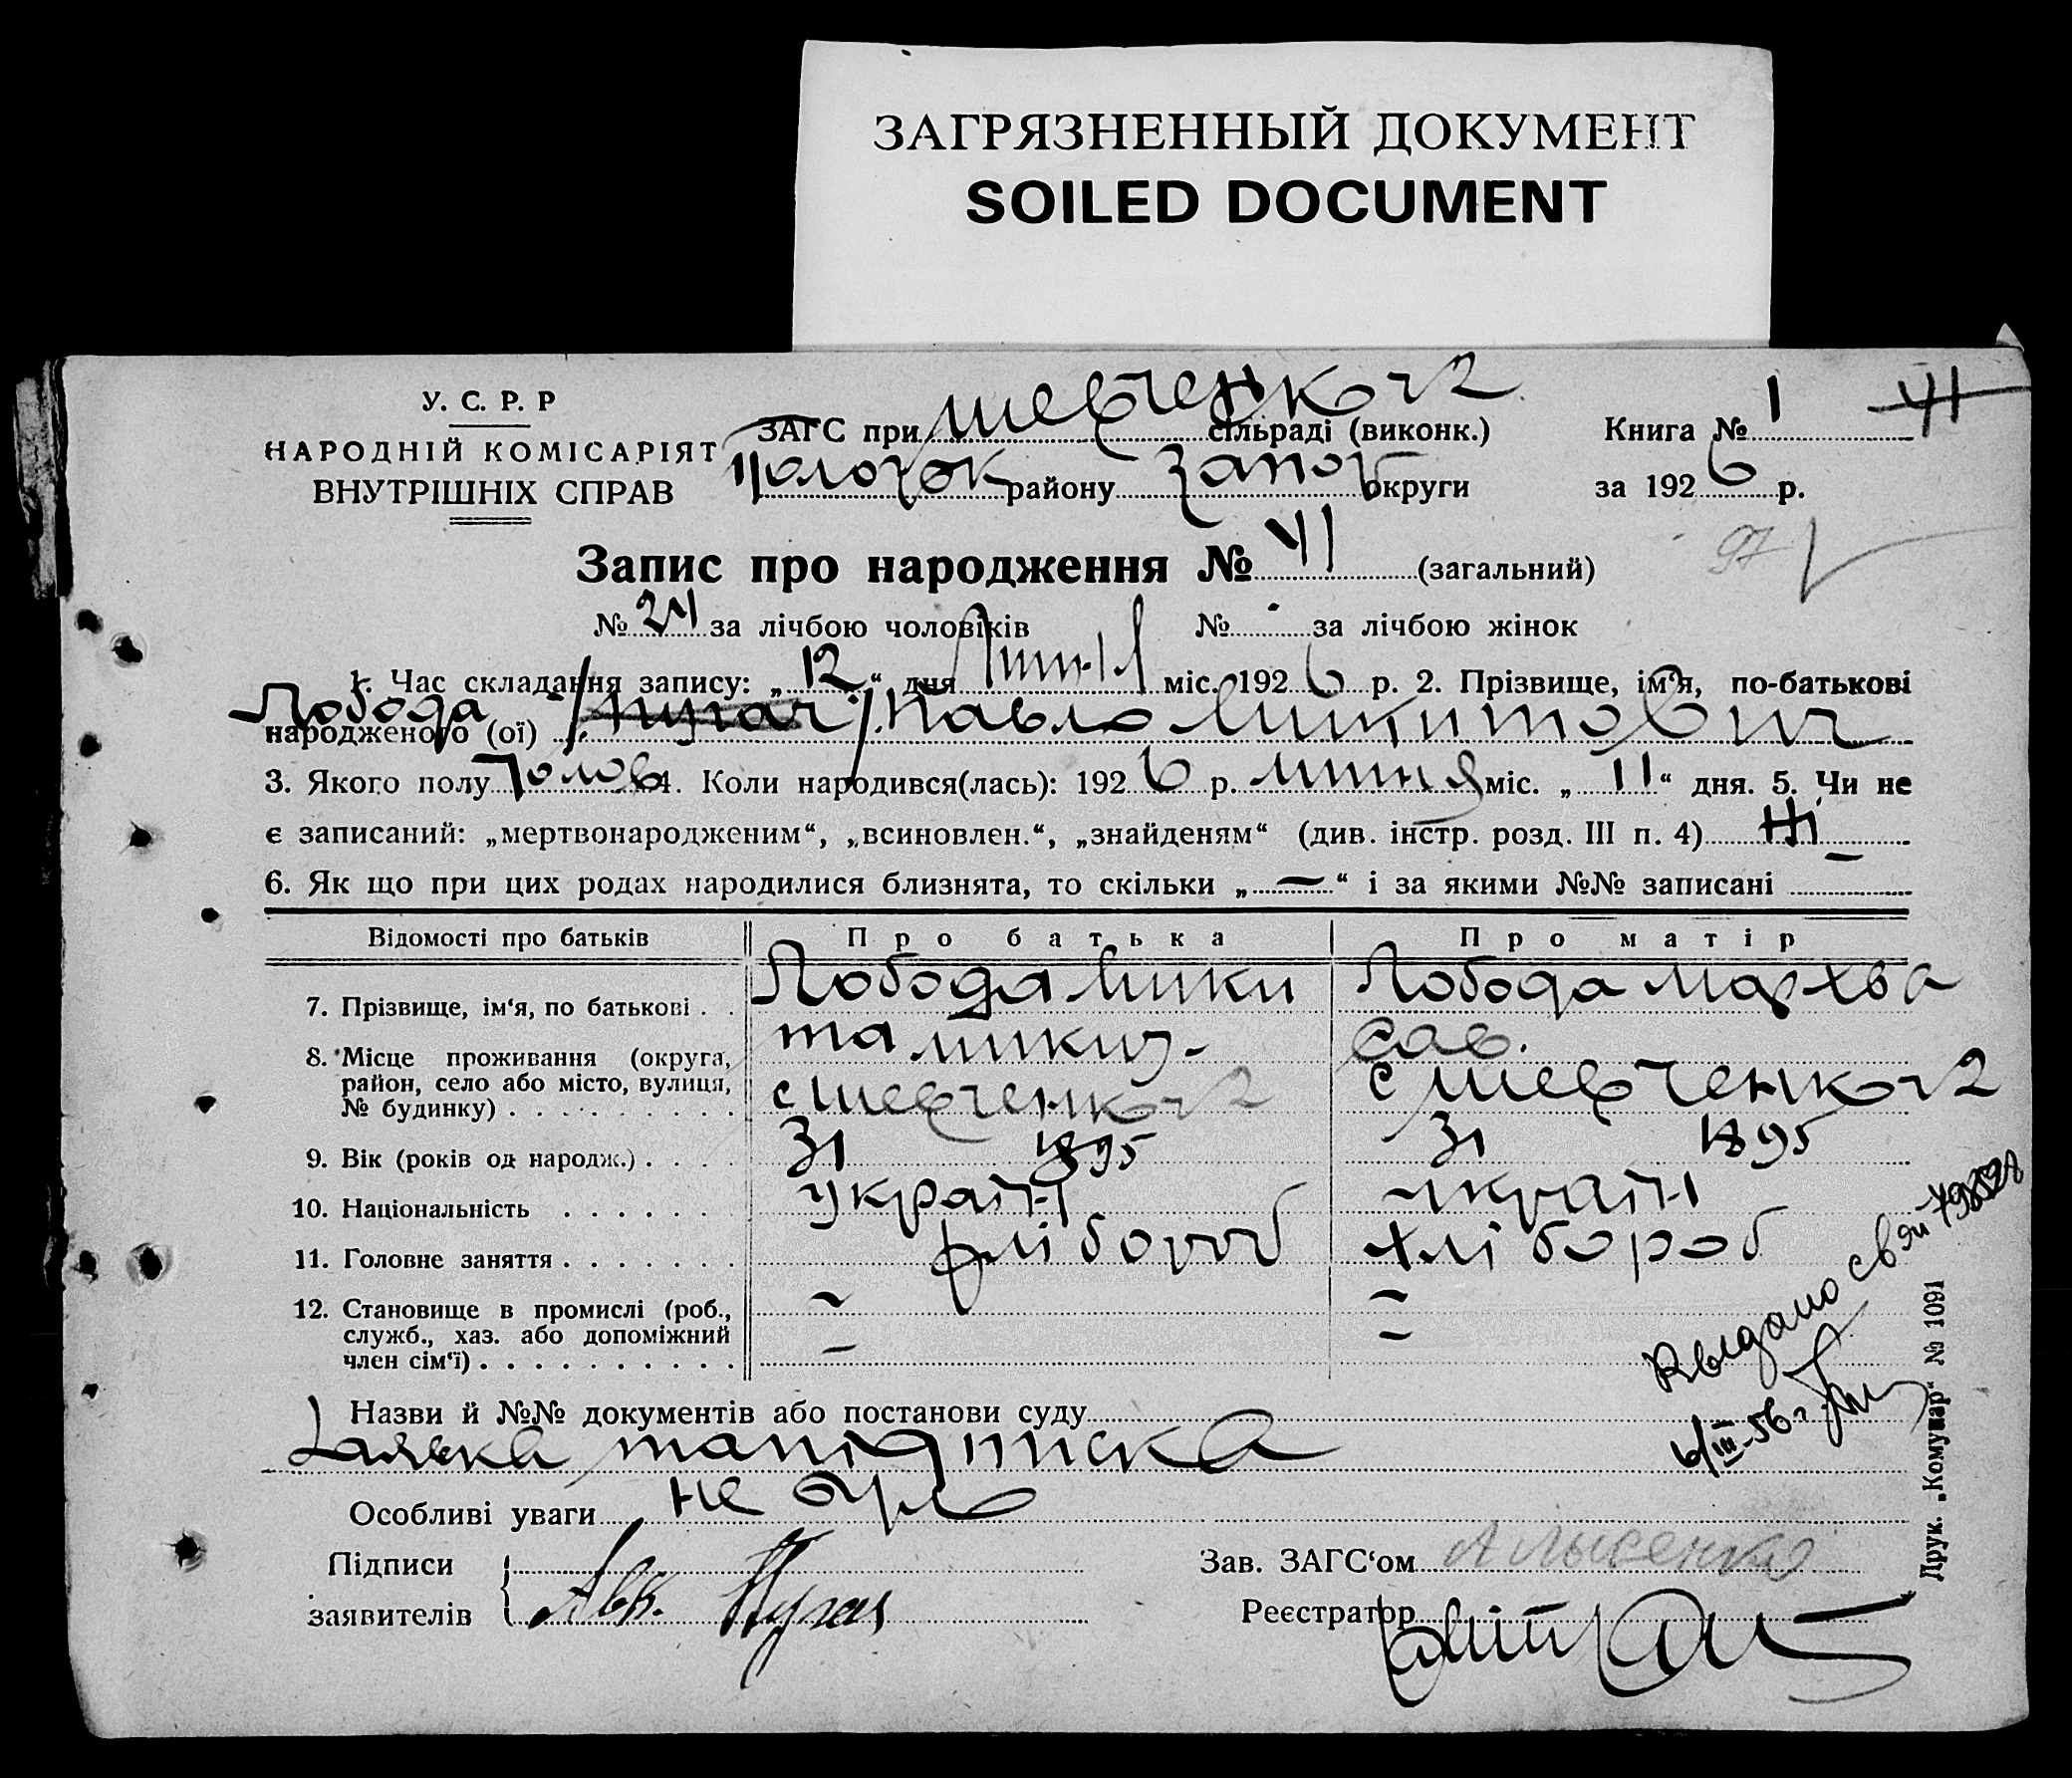 ЗАГРЯЗНЕННЫЙ ДОКУМЕНТ
SOILED DOCUMENT
У. С. Р. Р
НАРОДНІЙ КОМІСАРІЯТ
ВНУТРІШНІХ СПРАВ
ЗАГС при Шевченко сільраді (виконк.)
району Запор округи
Книга № 1 41
за 1926 р.
Запис про народження № 41 (загальний)
97
№ 24 за лічбою чоловіків № - за лічбою жінок
1. Час складання запису: „12“ дня Липня міс. 1926 р. 2. Прізвище, ім‘я, по-батькові
народженого (ої) Лобода /Пугач/ Павло Микитович
3. Якого полу Чолов 4. Коли народився(лась): 1926 р. липня міс. „11“ дня. 5. Чи не
є записаний: „мертвонародженим“, „всиновлен.“, „знайденям“ (див. інстр. розд. III п. 4) Ні
6. Як що при цих родах народилися близнята, то скільки „—“ і за якими №№ записані —
Відомості про батьків Про батька Про матір
7. Прізвище, ім‘я, по батькові . . Лобода Мики Лобода Мархва
та Сав.
8. Місце проживання (округа,
район, село або місто, вулиця,
№ будинку) . . . . . . . . . с Шевченко с Шевченко
9. Вік (років од народж.) . . . . 31 1895 31 1895
10. Національність . . . . . . . україн україн
11. Головне заняття . . . . . . . хлібороб хлібороб
12. Становище в промислі (роб., — —
служб., хаз. або допоміжний — —
член сім‘ї) . . . . . . . . . .
Выдано св
6/III-56 г
Назви й №№ документів або постанови суду
Заявка та підписка
Особливі уваги не було
Підписи
заявителів Авк. Пугач
Зав. ЗАГС‘ом А Лысенко
Реєстратор
Друк. „Комунар“ № 1091